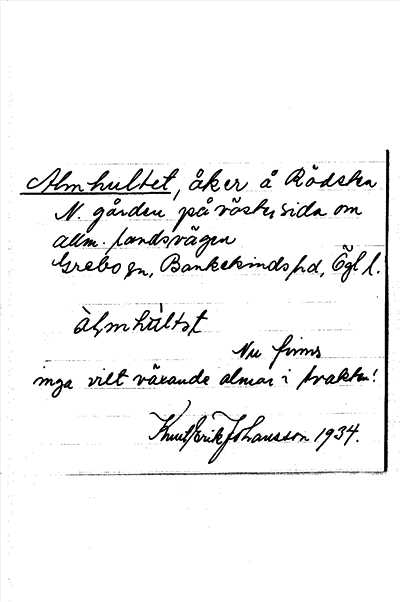 Almhultet, åker å Rödsten
N. gården på västra sida om
allm. landsvägen
Grebo sn, Bankekinds hd, Ögl l.
àl̨mhúltət
Nu finns
inga vilt växande almar i trakten!
Knut Erik Johansson 1934.